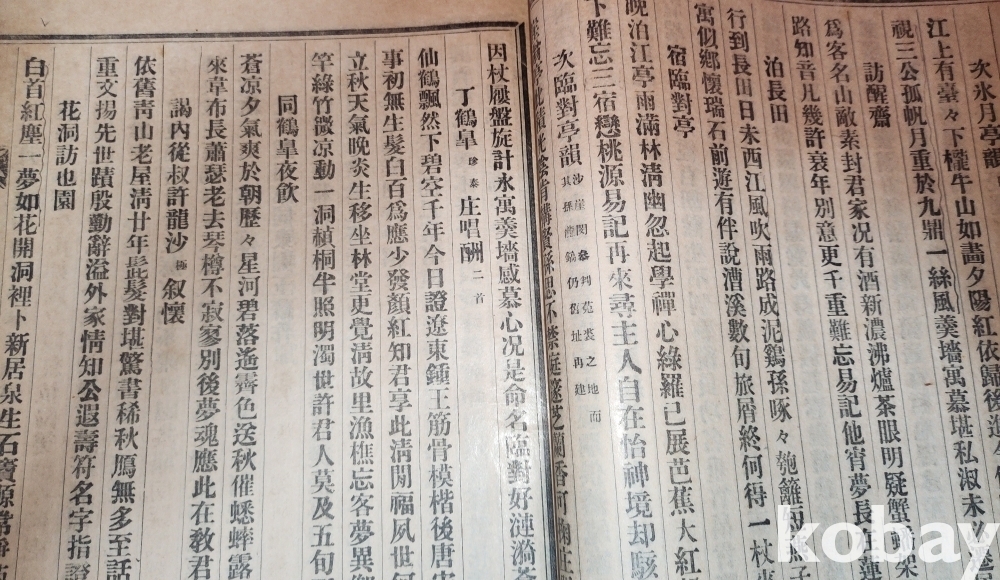 次氷月亭韻
江上有臺々下櫂牛山如畵夕陽紅依歸後進
視三公孤帆月重於九鼎一絲風羹墻寓慕堪私淑未
訪醒齋
爲客名山敵素封君家况有酒新濃沸爐茶眼明疑蟹
路知音凡幾許衰年別意更千重難忘易記他宵夢長
泊長田
行到長田日未西江風吹雨路成泥鷄孫啄々匏籬雨
寓似鄕懷瑞石前遊有伴說漕溪數旬旅屑終何得一杖
宿臨對亭
晩泊江亭雨滿林淸幽忽起學禪心綠羅已展芭蕉大紅
下難忘三宿戀桃源易記再來尋主人自在怡神境却
次臨對亭韻 沙崖閔參判菟裘之地而其孫舊仍舊址再建
因杖屨盤旋計永寓羹墻感慕心况是命名臨對好漣漪
丁鶴皐 珍秦 庄唱酬 二首
仙鶴飄然下碧空千年今日證遼東鍾王筋骨模楷後唐
事初無生髮白百爲應少發顏紅知君享此淸閒福夙世
立秋天氣晩炎生移坐林堂更覺淸故里漁樵忘客夢異
竿綠竹微凉動一洞赬桐牛照明濁世許君人莫及五旬
同鶴皐夜飮
蒼凉夕氣爽於朝歷々星河碧落遙齊色送秋催蟋蟀露
來韋布長蕭瑟老去琴樽不寂寥別後夢魂應此在敎君
謁內從叔許龍沙 極 叙懷
依舊靑山老屋淸廿年髭髮對堪驚書稀秋鴈無多至話
重文揚先世蹟殷勤辭溢外家情知公遐壽符名字指
花洞訪也園
白首紅塵一夢如花開洞裡卜新居泉生石竇源常